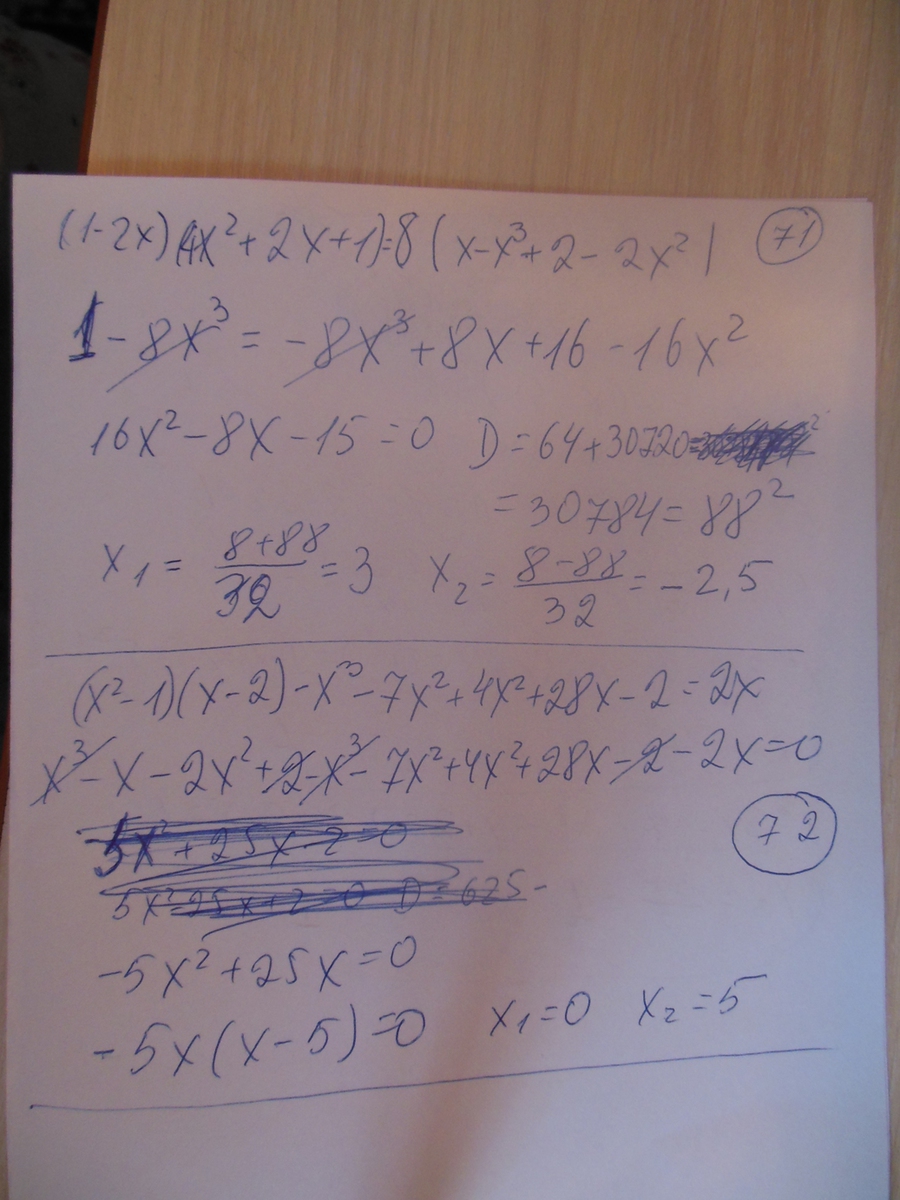 (1-2x)(4x²+2x+1)=8(x-x³+2-2x²) 71
1-8x³=-8x³+8x+16-16x²
16x²-8x-15=0 D=64+30720=
=30784=88²
x₁=(8+88)/32=3 x₂=(8-88)/32=-2,5
(x²-1)(x-2)-x³-7x²+4x²+28x-2=2x
x³-x-2x²+2-x³-7x²+4x²+28x-2-2x=0
5x²+25x-2=0 72
5x²-25x+2=0 D=625-
-5x²+25x=0
-5x(x-5)=0 x₁=0 x₂=5